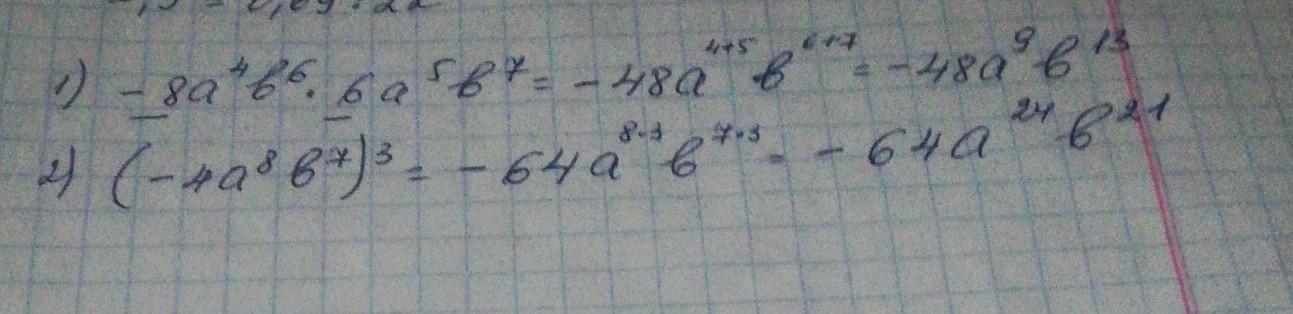 1) -8a⁴b⁶ · 6a⁵b⁷ = -48a⁴⁺⁵b⁶⁺⁷ = -48a⁹b¹³
2) (-4a⁸b⁷)³ = -64a⁸·³b⁷·³ = -64a²⁴b²¹